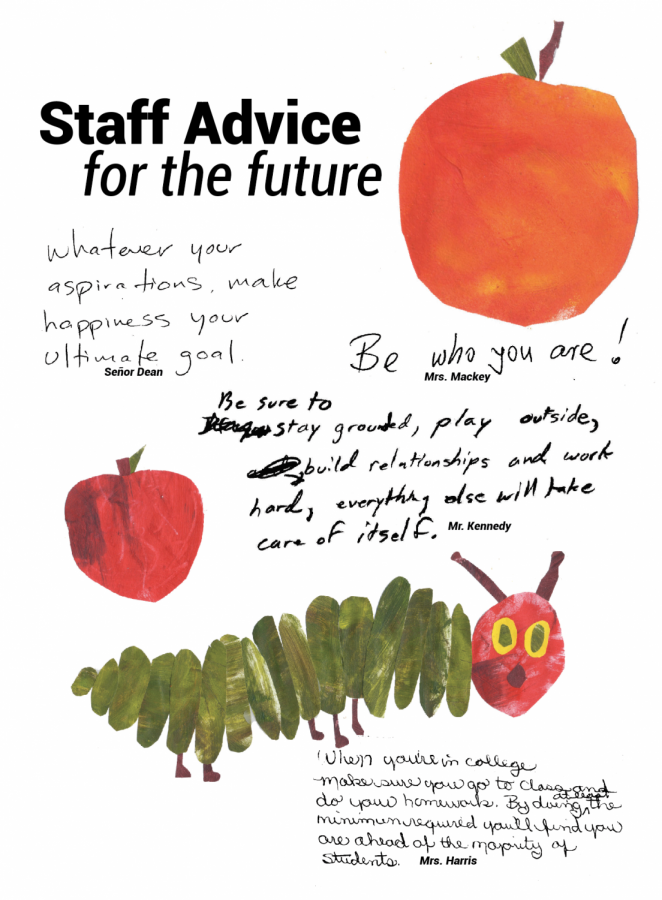 Staff Advice
for the future
whatever your
aspirations, make
happiness your
ultimate goal.
Señor Dean
Be who you are!
Mrs. Mackey
Be sure to
stay grounded, play outside,
build relationships and work
hard, everything else will take
care of itself.
Mr. Kennedy
When you're in college
make sure you go to class and
do your homework. By doing at least the
minimum required you'll find you
are ahead of the majority of
students.
Mrs. Harris